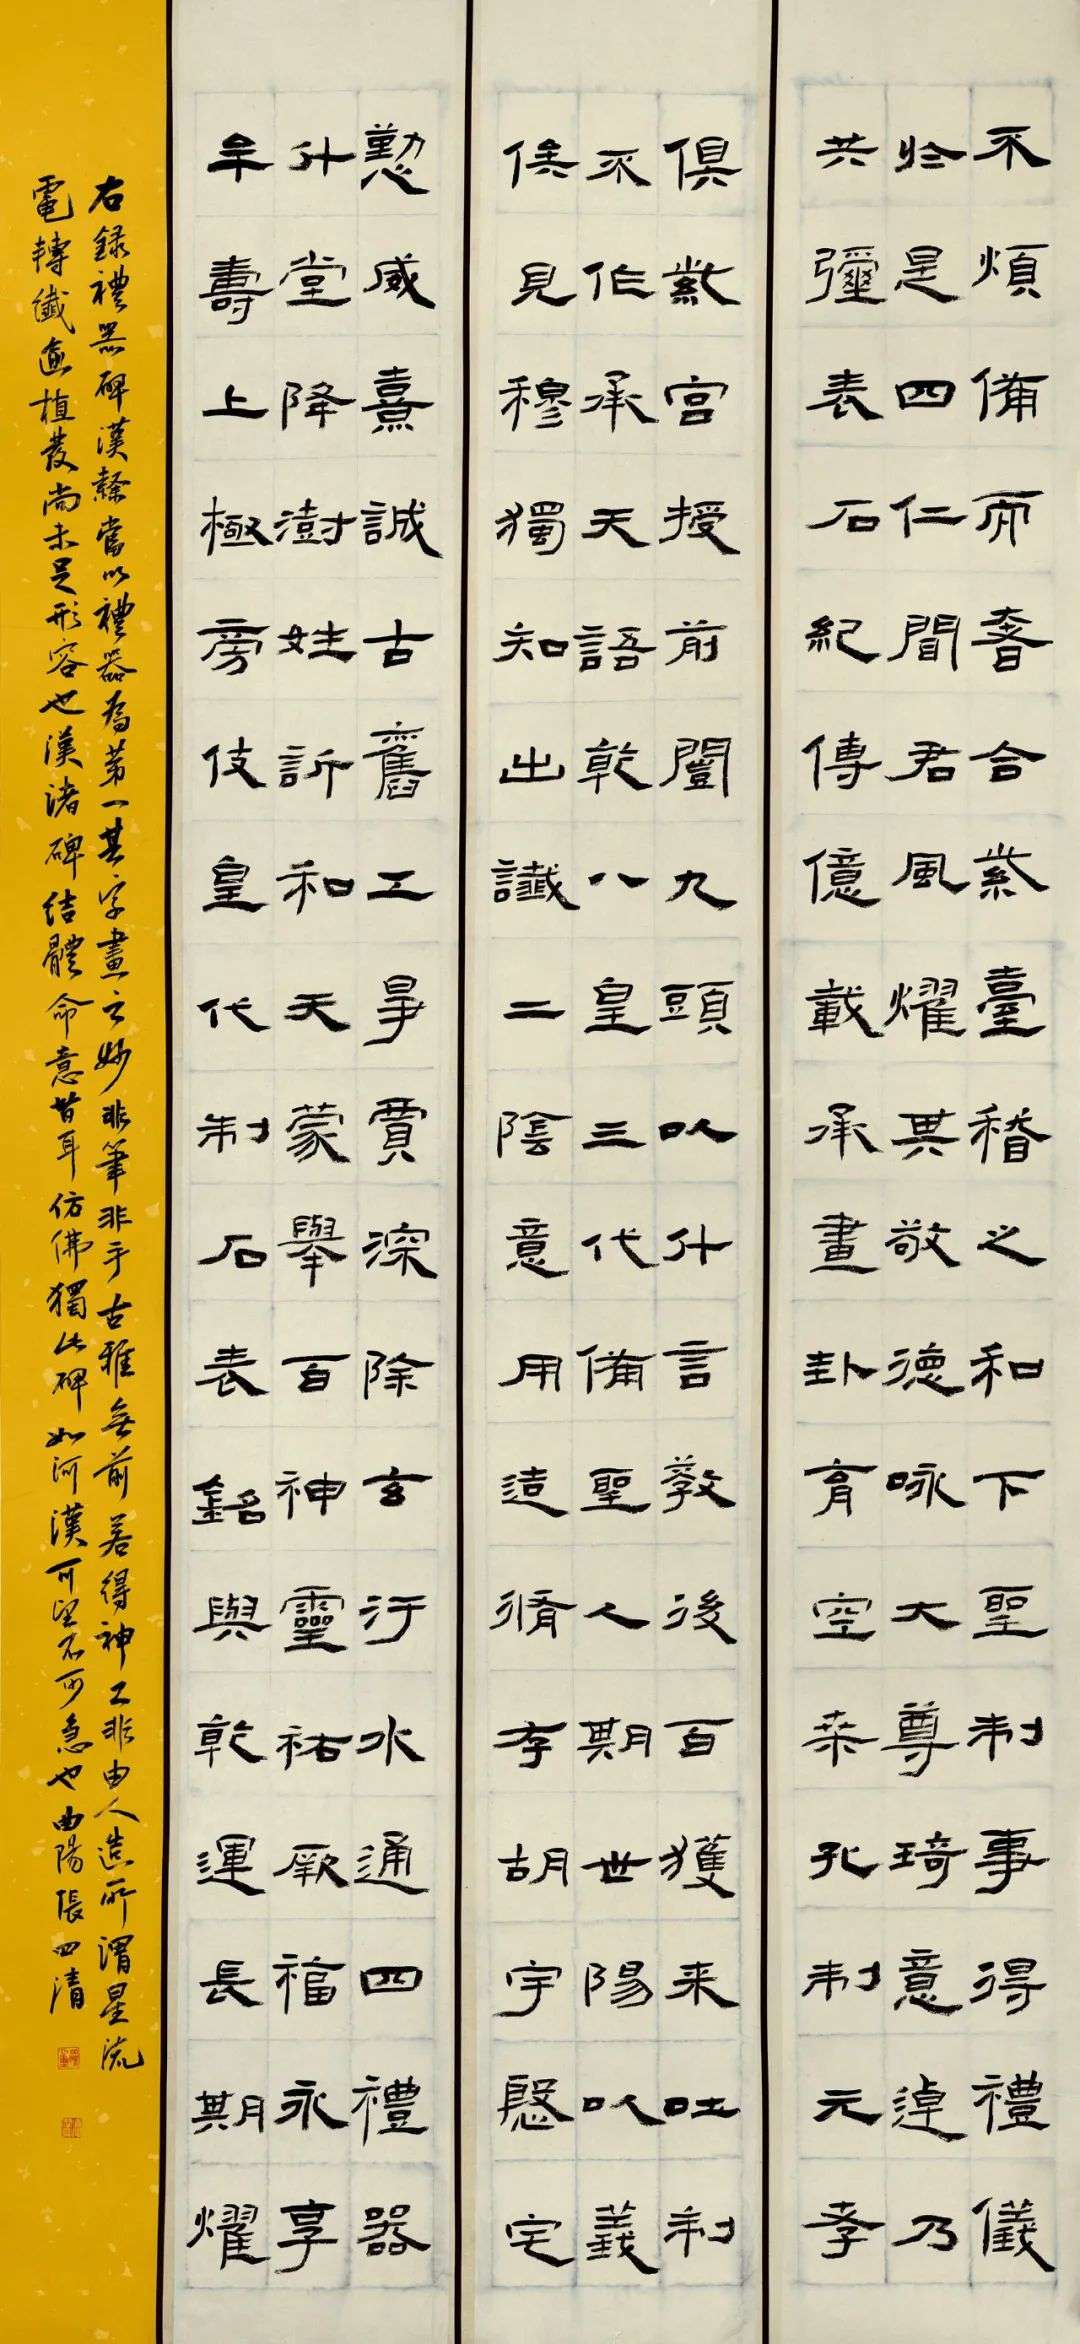 不煩備而奢合紫臺稽之和下聖制事得禮儀
於是四仁聞君風燿其敬德咏大尊琦意逴乃
共彌表石紀傳億載承畫卦育空桒孔制元孝
俱紫宮授前闓九頭以什言教後百獲来吐制
不作承天語乾八皇三代備聖人期世陽以義
俟見穆獨知出讖二陰意用造脩孝胡宇慇宅
懃威熹誠古舊工爭賈深除玄汙水通四禮器
升堂降澍姓訢和天蒙舉百神靈祐厥福永享
牟壽上極旁伎皇代刻石表銘與乾運長期燿
右錄禮器碑漢隸當以禮器為第一其字畫之妙非筆非手古雅無前若得神工非由人造所謂星流
電轉纖逾植髮尚未足形容也漢諸碑結體命意皆可仿佛獨此碑如河漢可望不可急也曲陽張四清